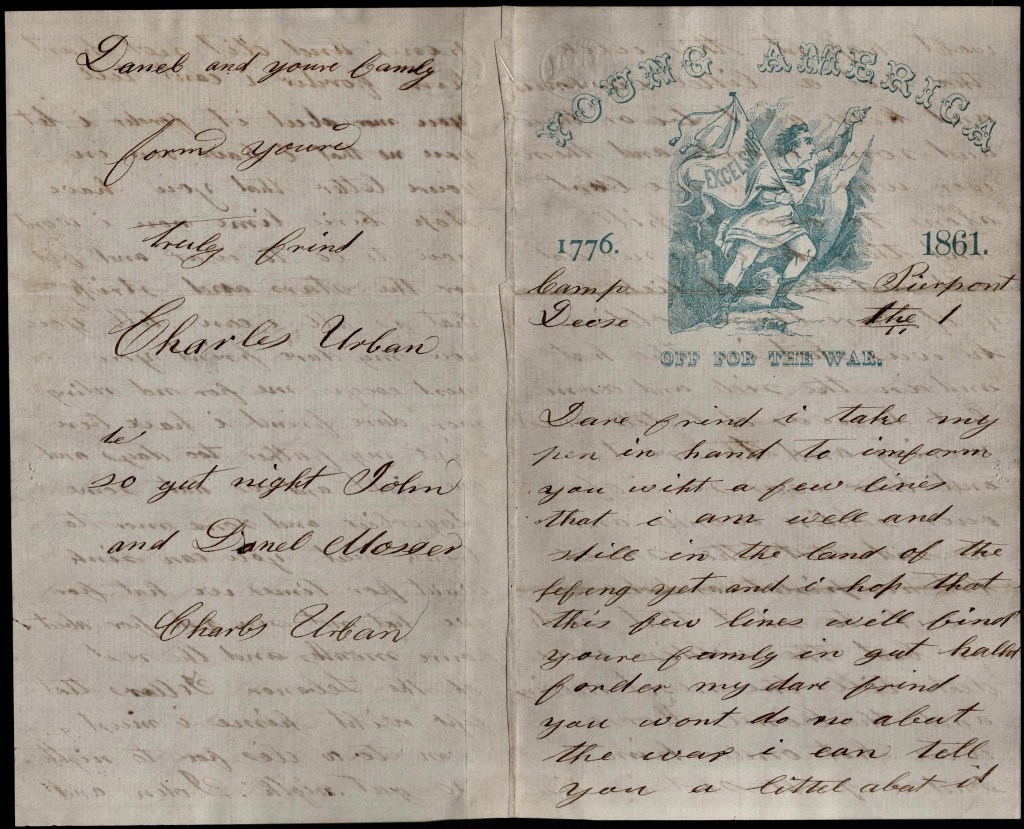 Danel and youre family
form youre
truly frind
Charles Urban
te
so gut night John
and Danel Mosser
Charls Urban
YOUNG AMERICA
EXCELSIOR
1776. 1861.
Camp Pierpont
Decse the 1
OFF FOR THE WAR.
Dare frind i take my
pen in hand to imform
you wiht a few lines
that i am well and
still in the land of the
lefeng yet and i hop that
this few lines will find
youre famly in gut halht
forder my dare frind
you wont do no abaut
the war i can tell
you a littel abat it